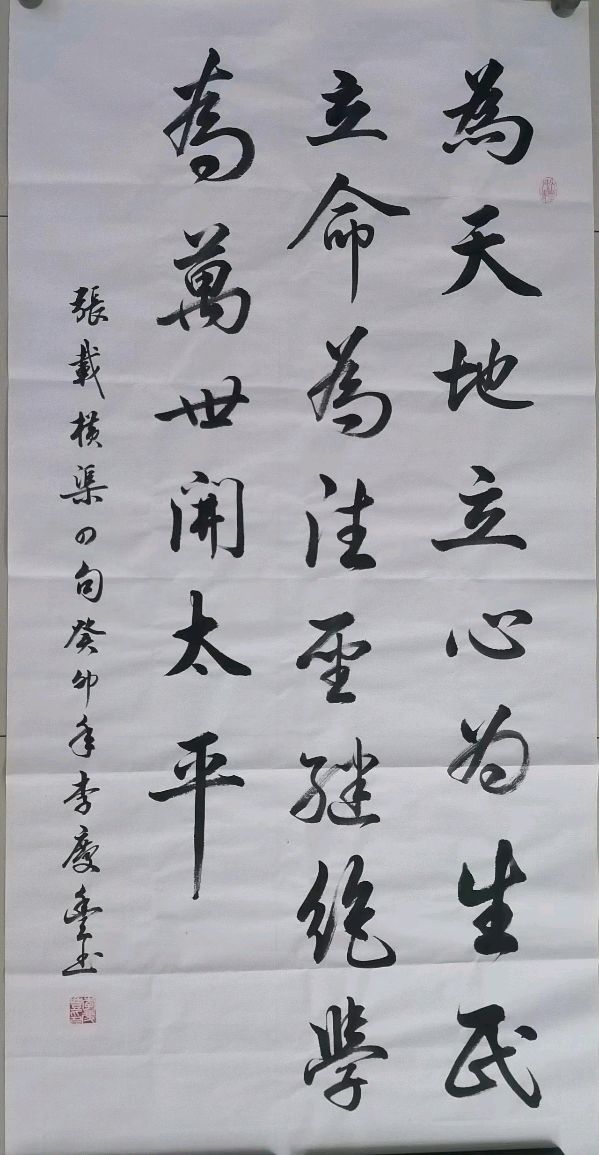 為天地立心为生民
立命為往聖継絕學
為萬世開太平
張載橫渠四句癸卯年李慶豐书